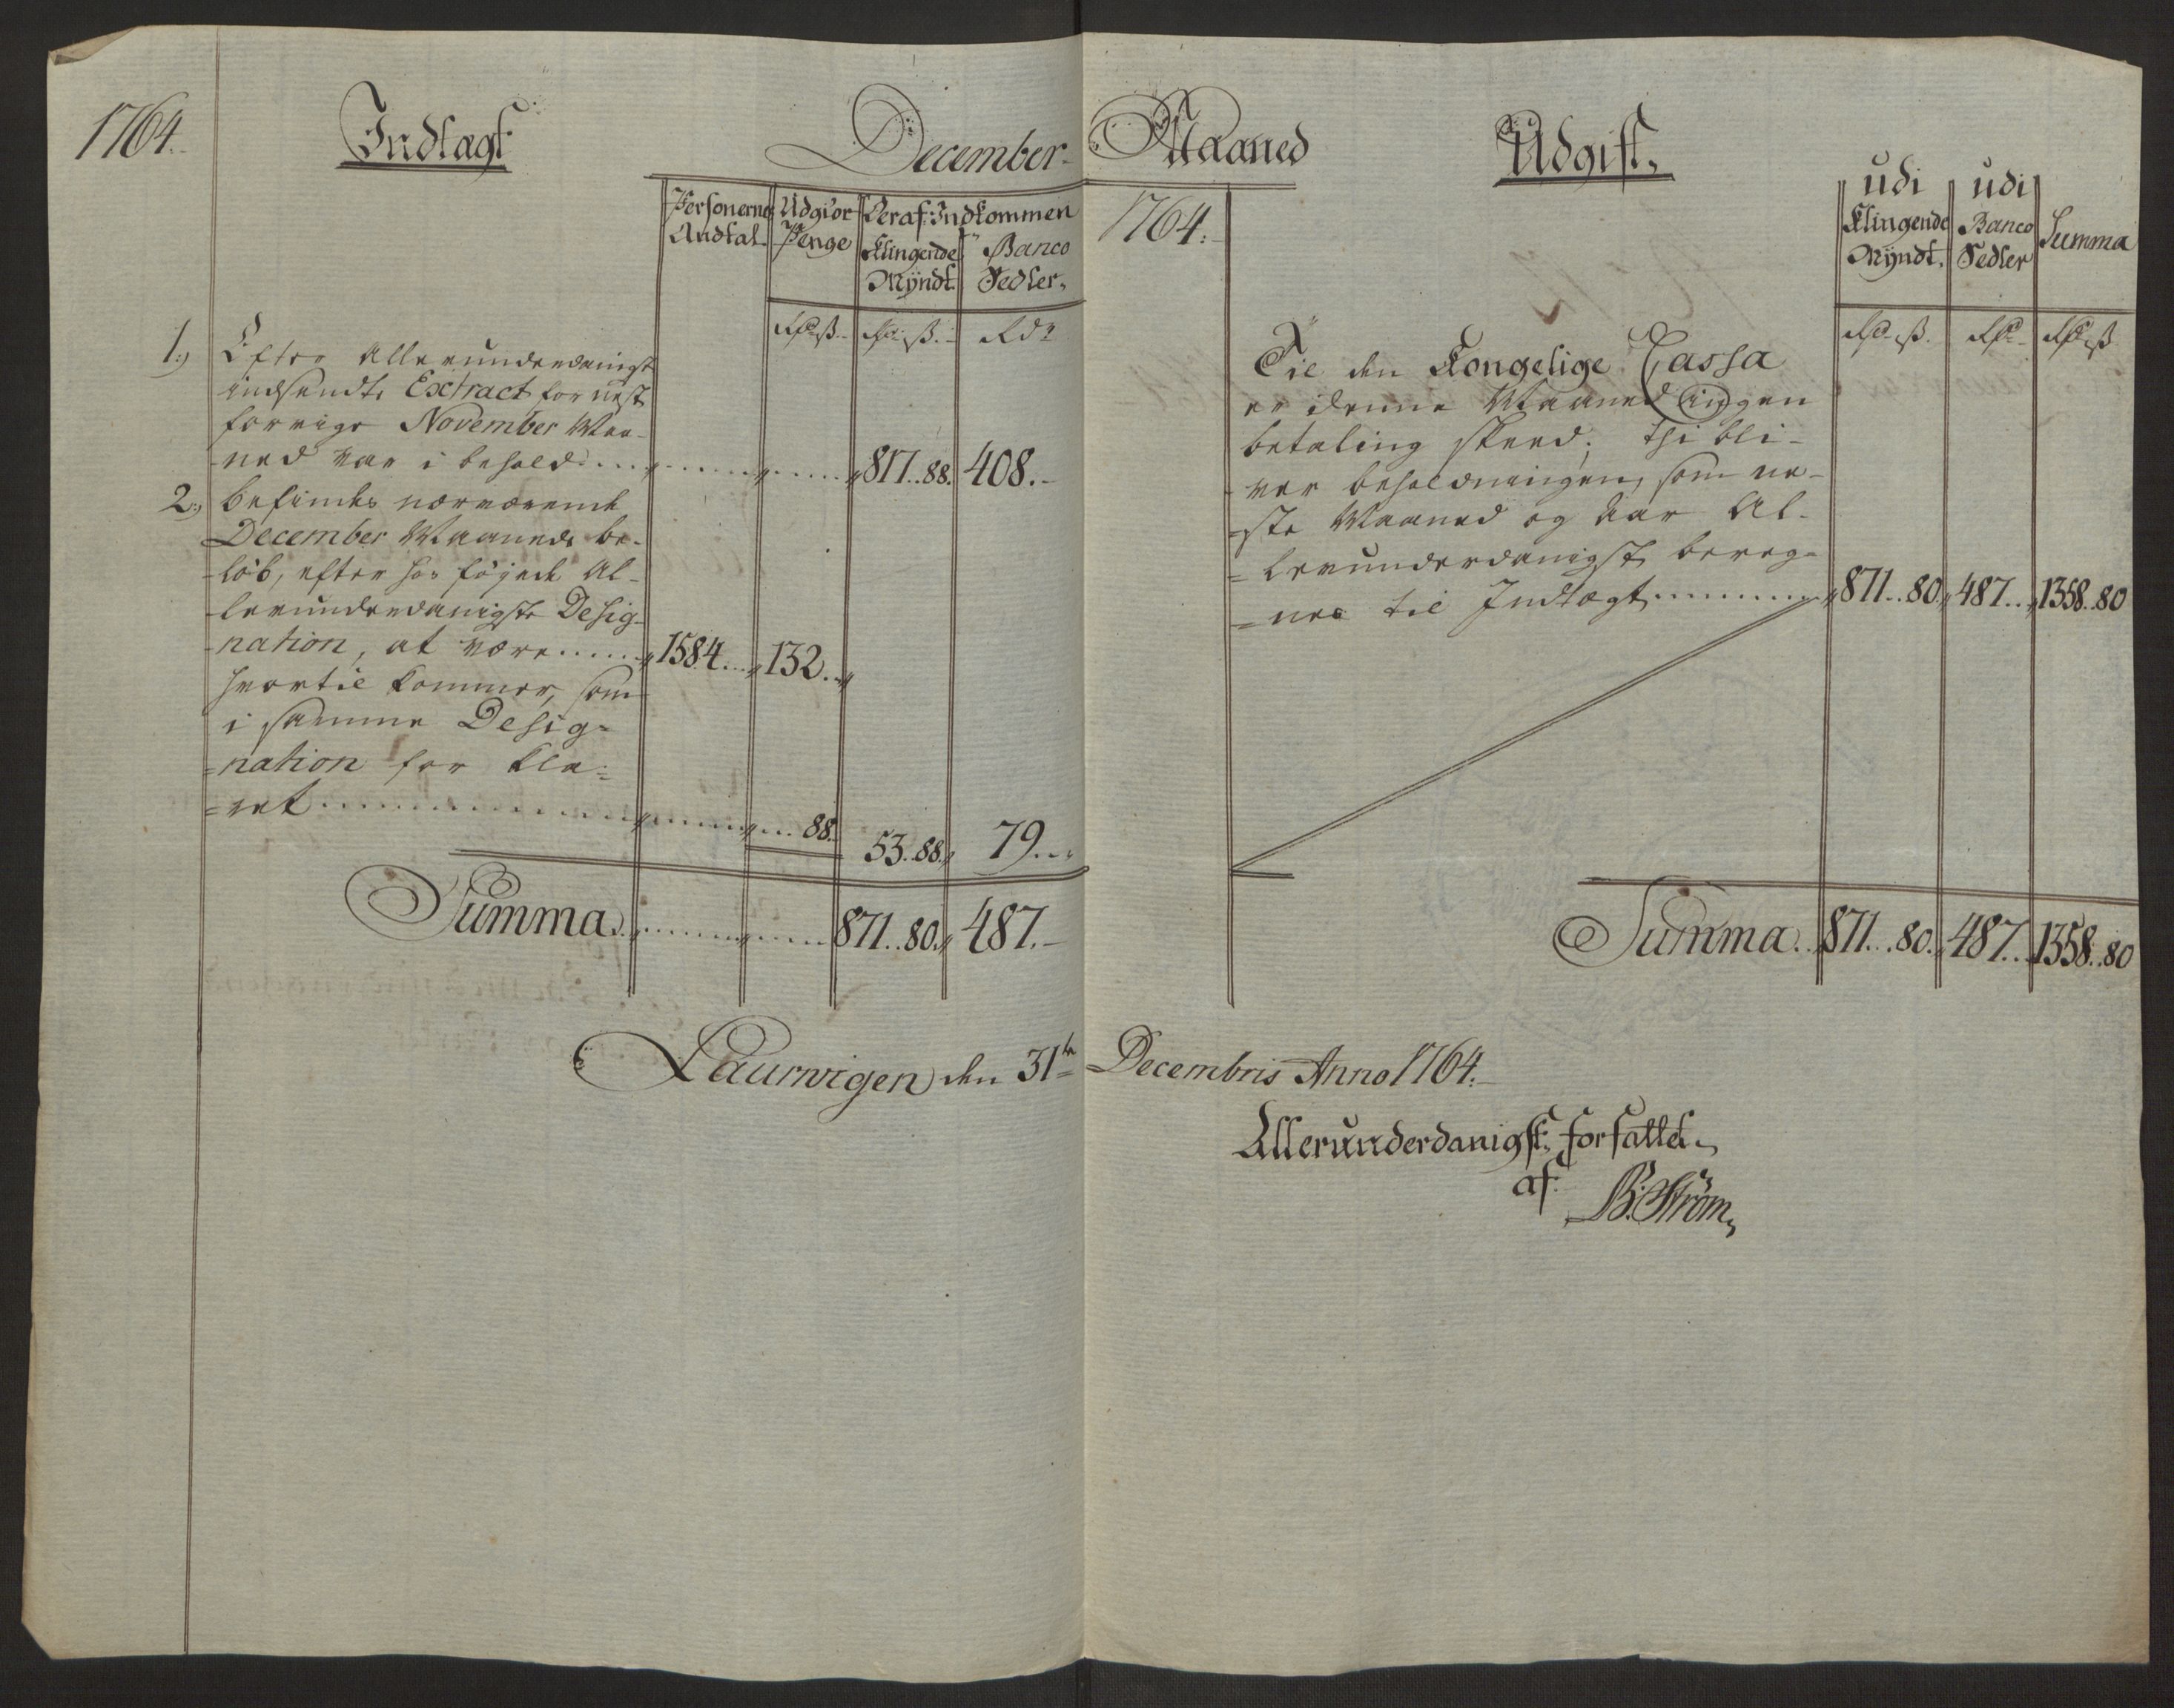 1764.
Indtægt
December
Personernes
Andtal.
Udgiør
Penge
Deraf Indkommen
Klingende
Mÿndt.
Banco
Sedler.
Rdr ß.
Rdr ß.
Rdr
1.) Efter allerunderdanigst
indsendte Extract for nest
forrige November Maa-
ned var i behold.... 817..88. 408.-
2.) befindes nærværende
December Maaneds be-
-løb, efter hos føyede Al-
-lerunderdanigste Desig-
-nation, at være..... 1584... 132...
hvortil kommer, som
i samme Desig=
=nation for kla=
=ret ........ 88. 53..88. 79...
Summa. ........ 871..80. 487.-
Laurvigen den 31te
Maaned
1764.
Udgift.
udi
Klingende
Mÿndt.
udi
Banco
Sedler
Summa
Rdr ß.
Rdr
Rdr ß
Til den Kongelige Cassa
er denne Maaned ingen
betaling skeed; thi bli-
-ver beholdningen, som ne-
-ste Maaned og Aar Al-
=lerunderdanigst bereg-
=nes til Indtægt........ 871..80. 487... 1358..80
Summa.. 871...80. 487... 1358..80
Decembris Anno 1764.
Allerunderdanigst forfattet
af
B: Strøm